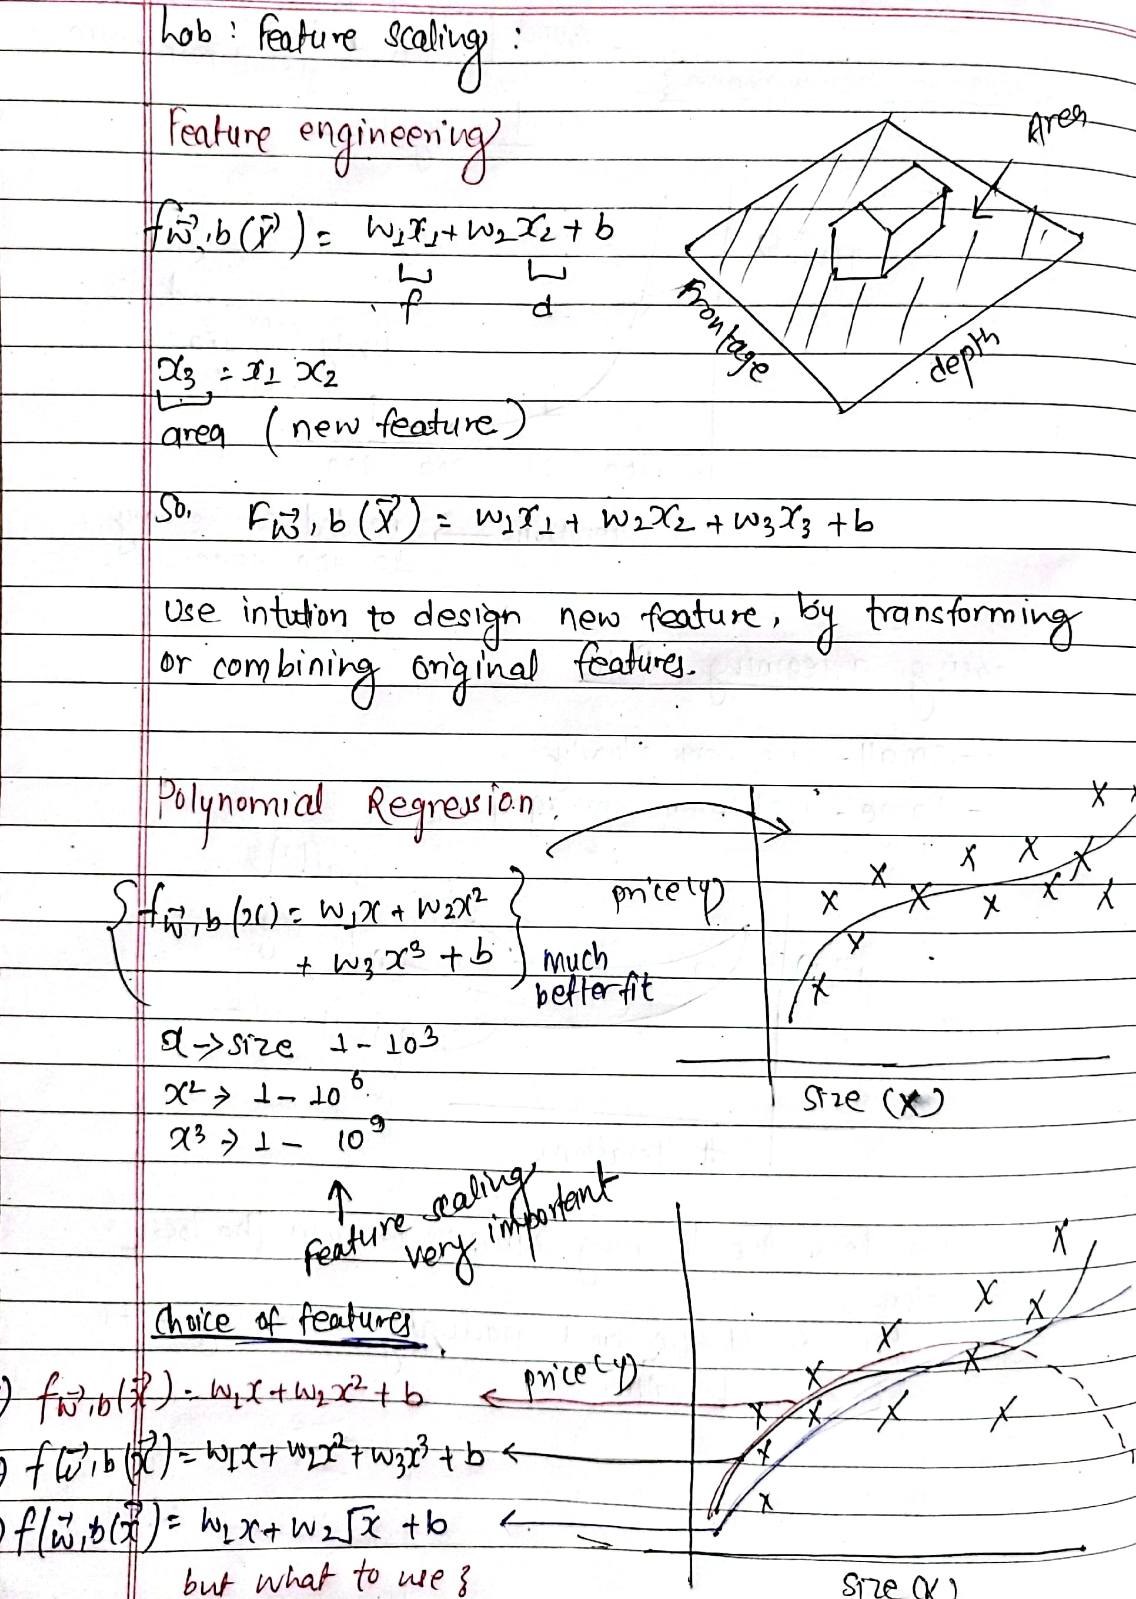 Lab : Feature scaling :
Feature engineering
f w⃗,b (x⃗) = w₁x₁ + w₂x₂ + b
f d
Area
Frontage
depth
x₃ = x₁ x₂
area (new feature)
So, F w⃗,b (x⃗) = w₁x₁ + w₂x₂ + w₃x₃ + b
Use intution to design new feature, by transforming
or combining original features.
Polynomial Regression:
f w⃗,b (x) = w₁x + w₂x²
+ w₃x³ + b
much
better fit
price(y)
size (x)
x → size 1 - 10³
x² → 1 - 10⁶
x³ → 1 - 10⁹
↑
Feature scaling
very important
Choice of features
) f w⃗,b (x⃗) = w₁x + w₂x² + b ←
) f (w⃗,b (x⃗) = w₁x + w₂x² + w₃x³ + b ←
) f (w⃗,b (x⃗) = w₁x + w₂√x + b ←
but what to use ?
price(y)
size (x)